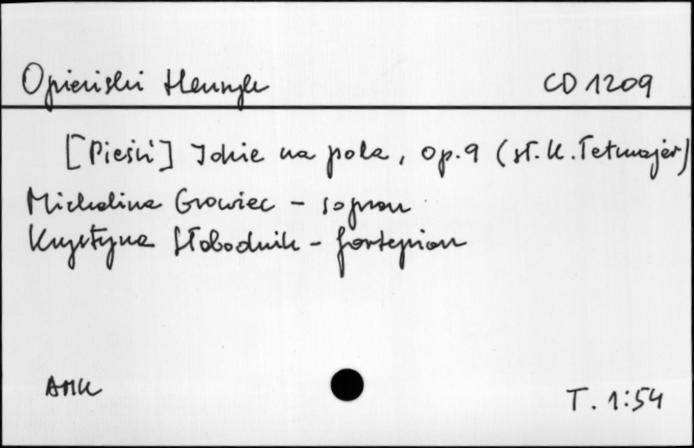 Opieński Henryk CD 1209
[Pieśń] Idzie na pola, op. 9 (sł. K. Tetmajer)
Michalina Growiec - sopran
Krystyna Słobodnik - fortepian
AMK T. 1:54